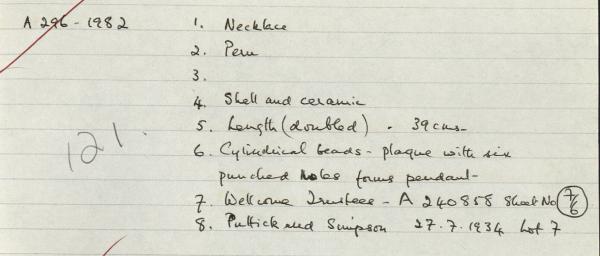 A 296-1982 1. Necklace
2. Peru
3.
4. Shell and ceramic
5. Length (doubled) . 39 cms-
6. Cylindrical beads - plaque with six
punched holes forms pendant-
121.
7. Wellcome Trustees - A 240858 Sheet No 7/6
8. Puttick and Simpson 27.7.1934 Lot 7